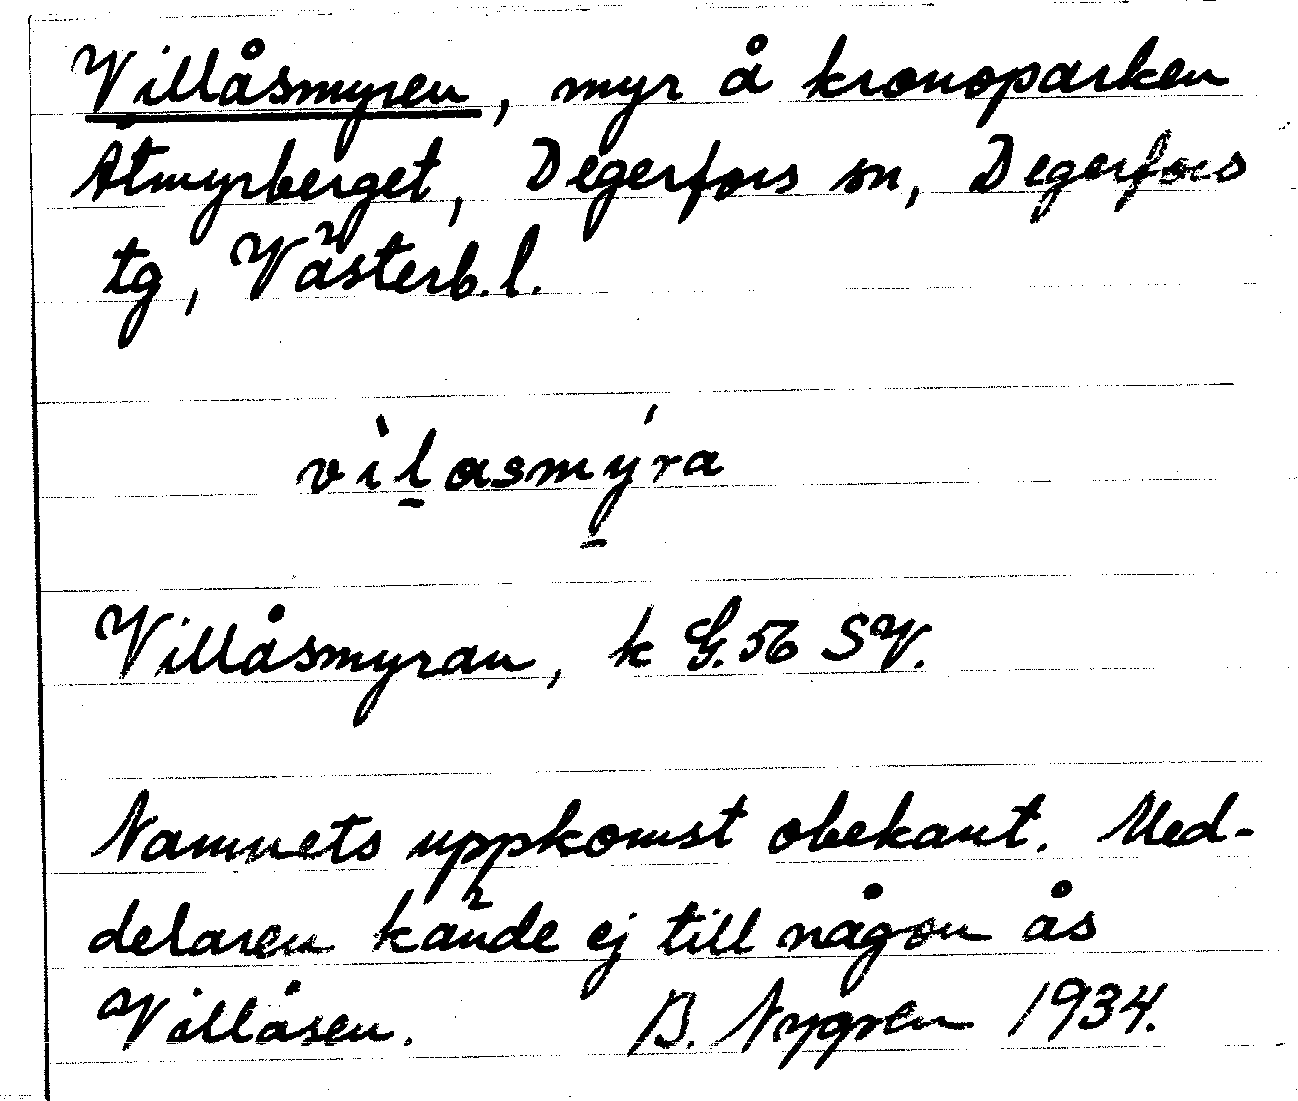 Villåsmyren, myr å kronoparken
Åtmyrberget, Degerfors sn, Degerfors
tg, Västerb. l.
vìl̠asmý̠ra
Villåsmyran, k G. 56 SV.
Namnets uppkomst obekant. Med-
delaren kände ej till någon ås
Villåsen. B. Nygren 1934.